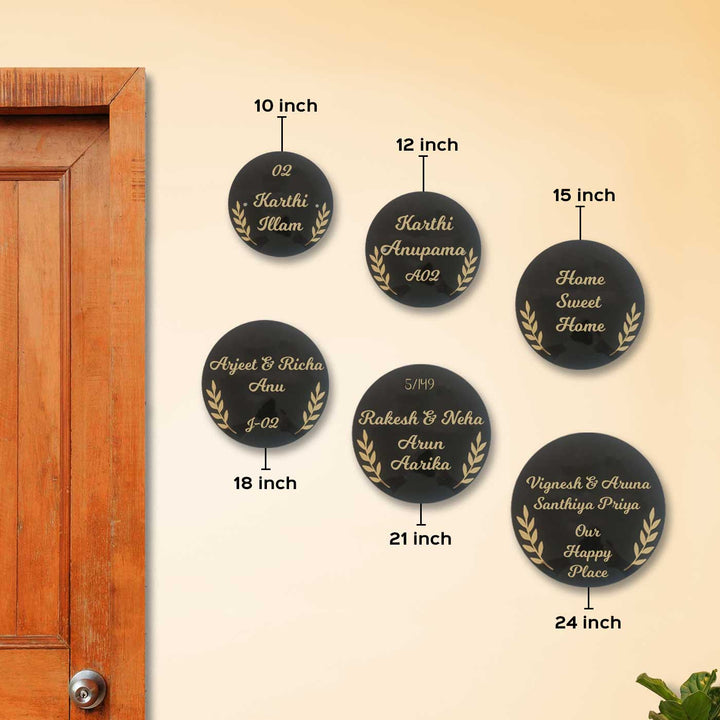 10 inch
02
Karthi
Illam
12 inch
Karthi
Anupama
A02
15 inch
Home
Sweet
Home
Arjeet & Richa
Anu
J-02
18 inch
5/149
Rakesh & Neha
Arun
Aarika
21 inch
Vignesh & Aruna
Santhiya Priya
Our
Happy
Place
24 inch